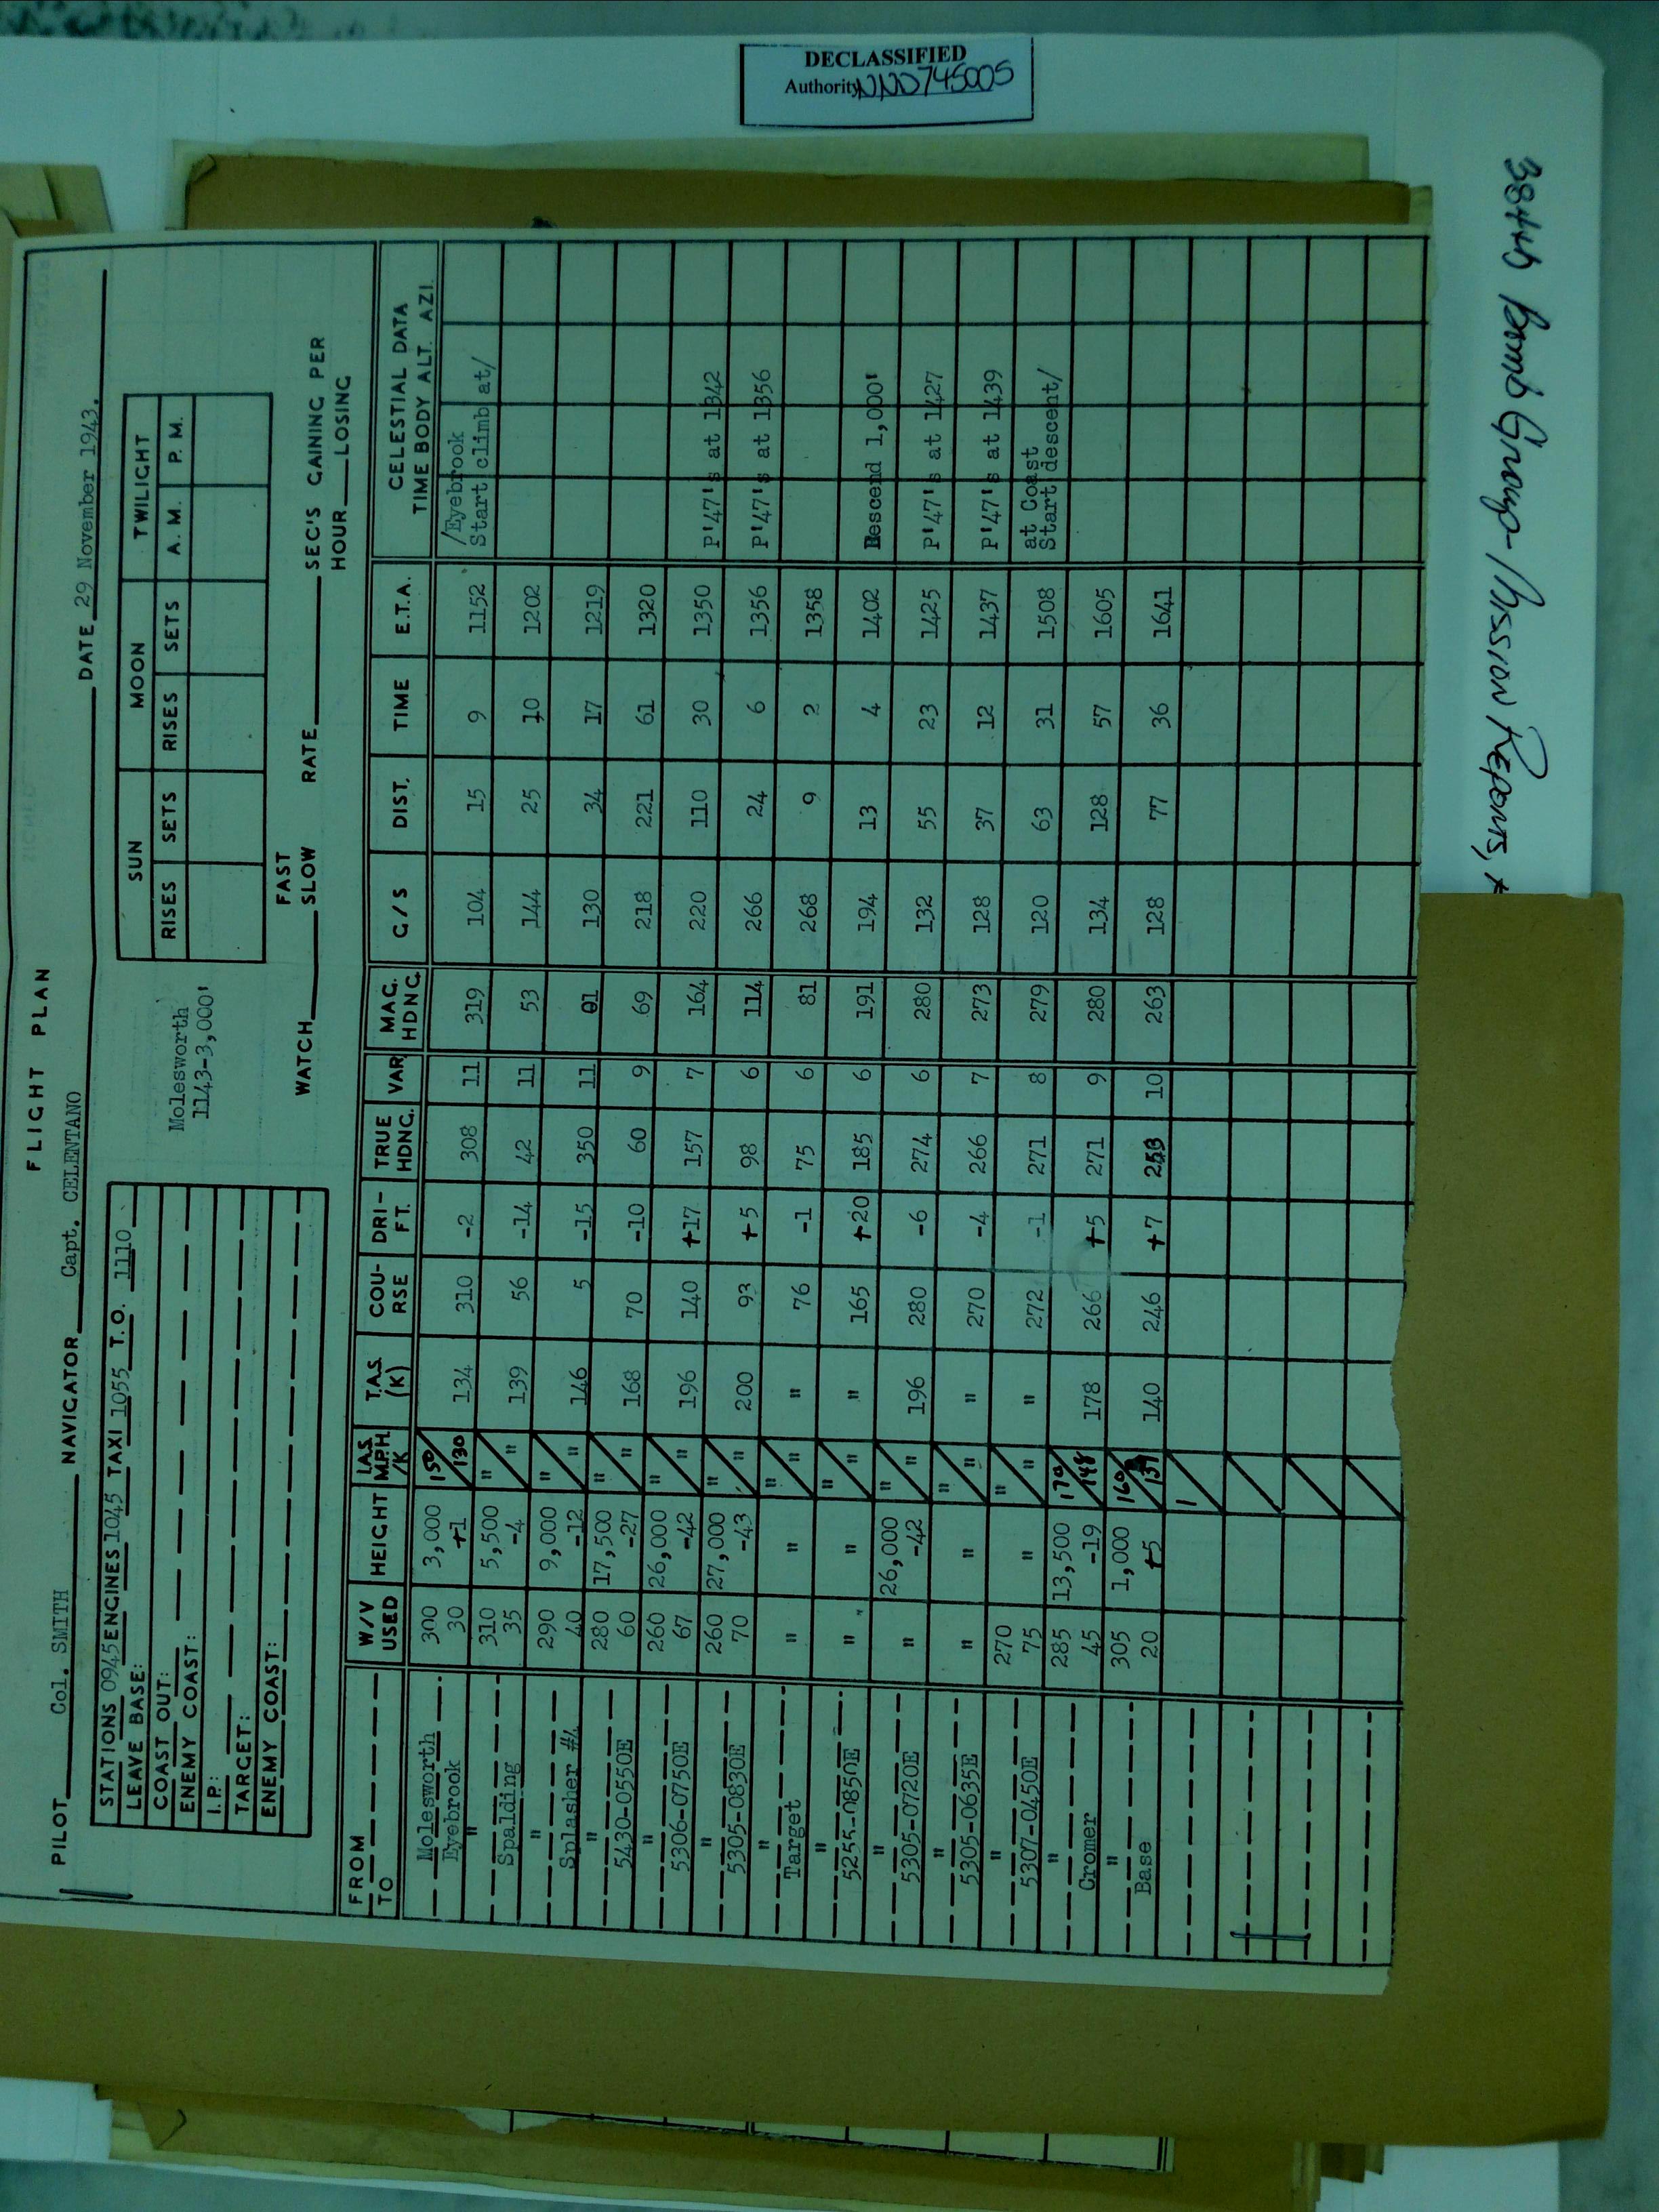 DECLASSIFIED
Authority NND745005
384th Bomb Group - Mission Reports,
FLIGHT PLAN
PILOT Col. SMITH NAVIGATOR Capt. CELENTANO DATE 29 November 1943.
STATIONS 0945 ENGINES 1045 TAXI 1055 T.O. 1110
LEAVE BASE:
COAST OUT:
ENEMY COAST:
I.P.:
TARGET:
ENEMY COAST:
Molesworth
1143-3,000'
SUN MOON TWILIGHT
RISES SETS RISES SETS A. M. P. M.
WATCH FAST
SLOW RATE SEC'S GAINING PER
HOUR LOSING
FROM
TO W/V
USED HEIGHT I.A.S.
M.P.H.
/K T.A.S.
(K) COU-
RSE DRI-
FT. TRUE
HDNG. VAR MAG.
HDNG G/S DIST. TIME E.T.A. CELESTIAL DATA
TIME BODY ALT. AZI.
Molesworth 300 3,000 150 /Eyebrook
Eyebrook 30 +1 130 134 310 -2 308 11 319 104 15 9 1152 Start climb at/
" 310 5,500 "
Spalding 35 -4 " 139 56 -14 42 11 53 144 25 10 1202
" 290 9,000 "
Splasher #4 40 -12 " 146 5 -15 350 11 01 130 34 17 1219
" 280 17,500 "
5430-0550E 60 -27 " 168 70 -10 60 9 69 218 221 61 1320
" 260 26,000 "
5306-0750E 67 -42 " 196 140 +17 157 7 164 220 110 30 1350 P'47's at 1342
" 260 27,000 "
5305-0830E 70 -43 " 200 93 +5 98 6 114 266 24 6 1356 P'47's at 1356
" "
Target " " " " 76 -1 75 6 81 268 9 2 1358
" "
5255-0850E " " " " 165 +20 185 6 191 194 13 4 1402 Descend 1,000'
" 26,000 "
5305-0720E " -42 " 196 280 -6 274 6 280 132 55 23 1425 P'47's at 1427
" "
5305-0635E " " " " 270 -4 266 7 273 128 37 12 1437 P'47's at 1439
" 270 " at Coast
5307-0450E 75 " " " 272 -1 271 8 279 120 63 31 1508 Start descent/
" 285 13,500 170
Cromer 45 -19 148 178 266 +5 271 9 280 134 128 57 1605
" 305 1,000 160
Base 20 +5 139 140 246 +7 253 10 263 128 77 36 1641